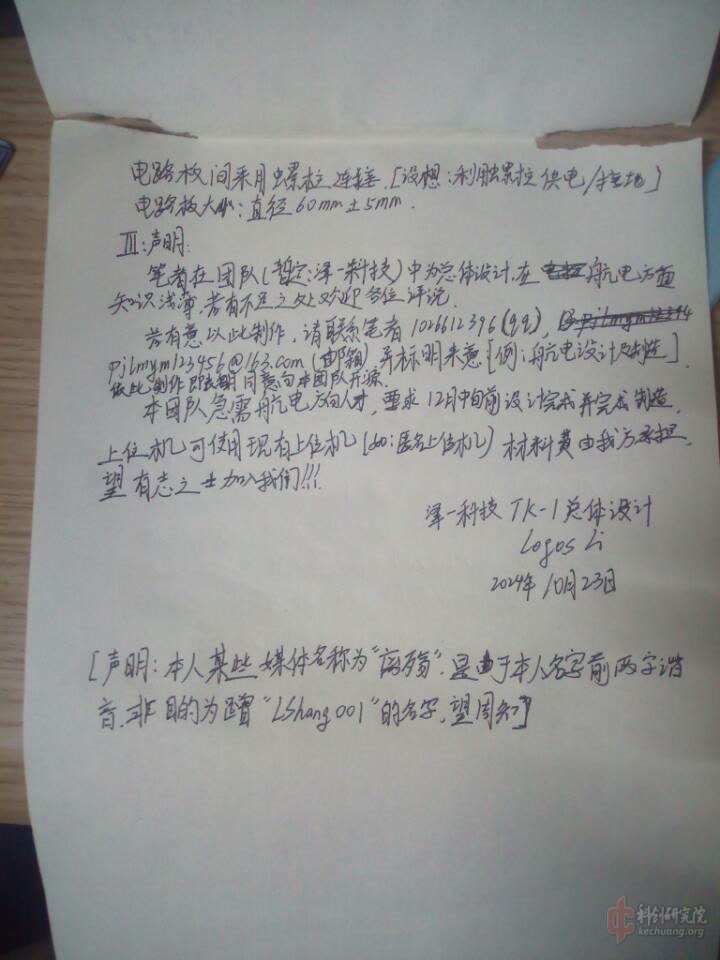 电路板间采用螺柱连接.[设想:利用螺柱供电/接地]
电路板大小:直径60mm±5mm.
Ⅲ:声明:
笔者在团队(暂定:泽一科技)中为总体设计.在航电方面
知识浅薄,若有不足之处欢迎各位评说.
若有意以此制作,请联系笔者1026612396(qq),
pjlmym123456@163.com(邮箱)并标明来意[例:航电设计及制造].
依此制作即表明同意向本团队开源.
本团队急需航电方向人才,要求12月中旬前设计完成并完成制造,
上位机可使用现有上位机(如:匿名上位机)材料费由我方承担.
望有志之士加入我们!!!
泽一科技 TK-1总体设计
Logos Li
2024年10月23日
[声明:本人某些媒体名称为"离殇".是由于本人名字前两字谐
音,非目的为蹭"LShang001"的名字,望周知]
科创研究院
kechuang.org